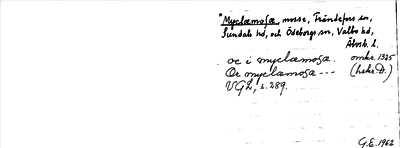 *Myclæmosa, mosse, Frändefors sn,
Sundals hd, och Ödeborgs sn, Valbo hd,
Älvsb. l.
oc i myclæmosa. omkr. 1325
Or myclæmosa --- (hskr. D.)
VGL, s. 289.
G.E. 1962